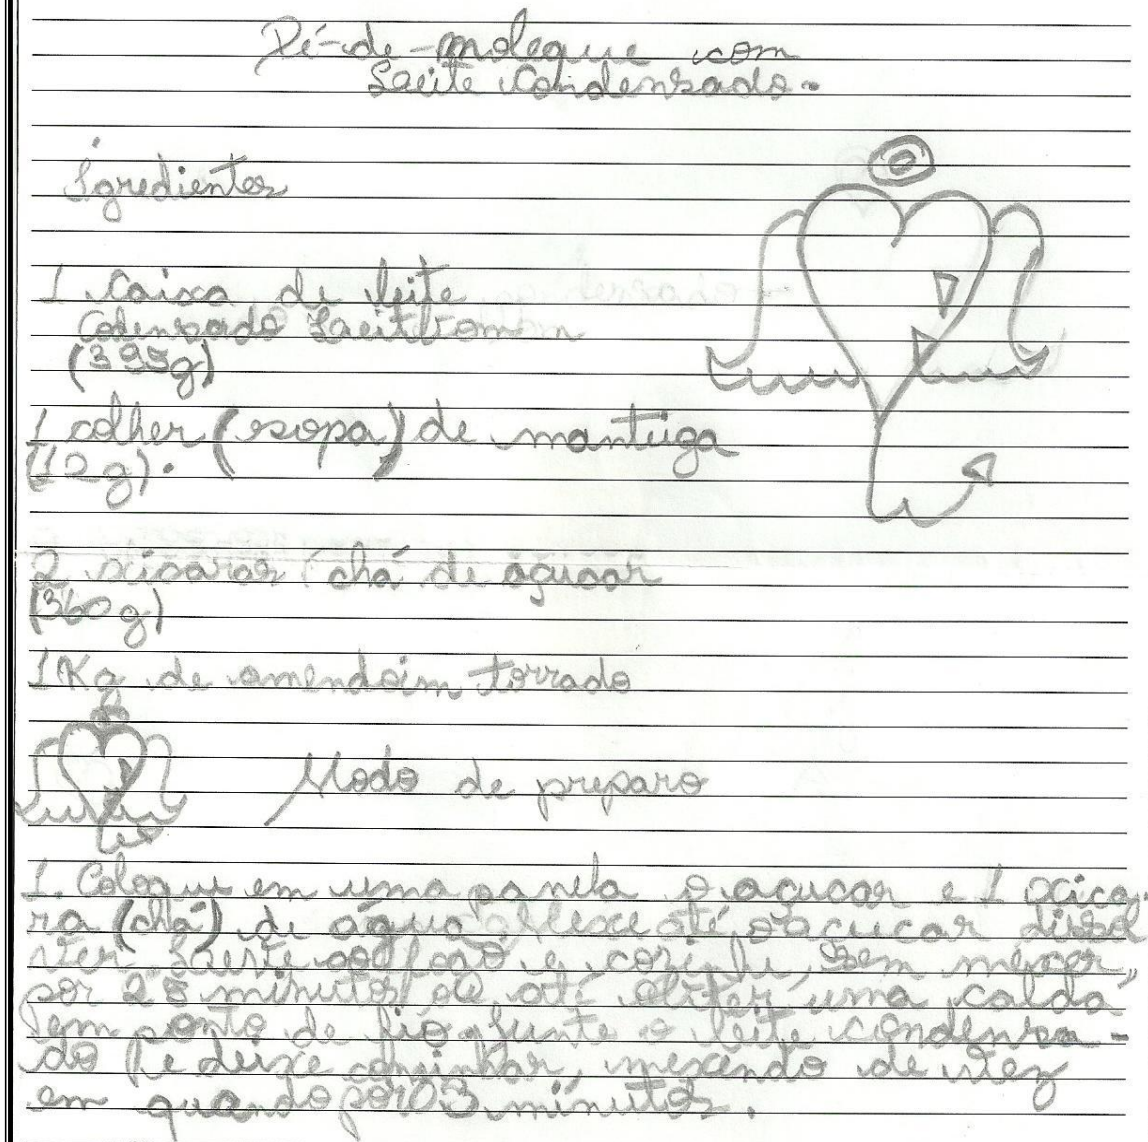 Pé-de-moleque com
Leite Condensado.
Igredientes
1 Caixa de leite
Codensado Leitebom
(395g)
1 colher (sopa) de manteiga
(12g).
2 xicaras (chá de açucar
(360g)
1 Kg de amendoim torrado
Modo de preparo
1. Coloque em uma panela o açucar e 1 xica-
ra (chá) de água. Mexe até o açucar dissol
ver. ao fogo e cozinhe, sem mexer,
por 25 minutos ou até obter uma calda
em ponto de fio. Junte o leite condensa-
do e deixe cohzinhar, mexendo de vez
em quando por 03 minutos.